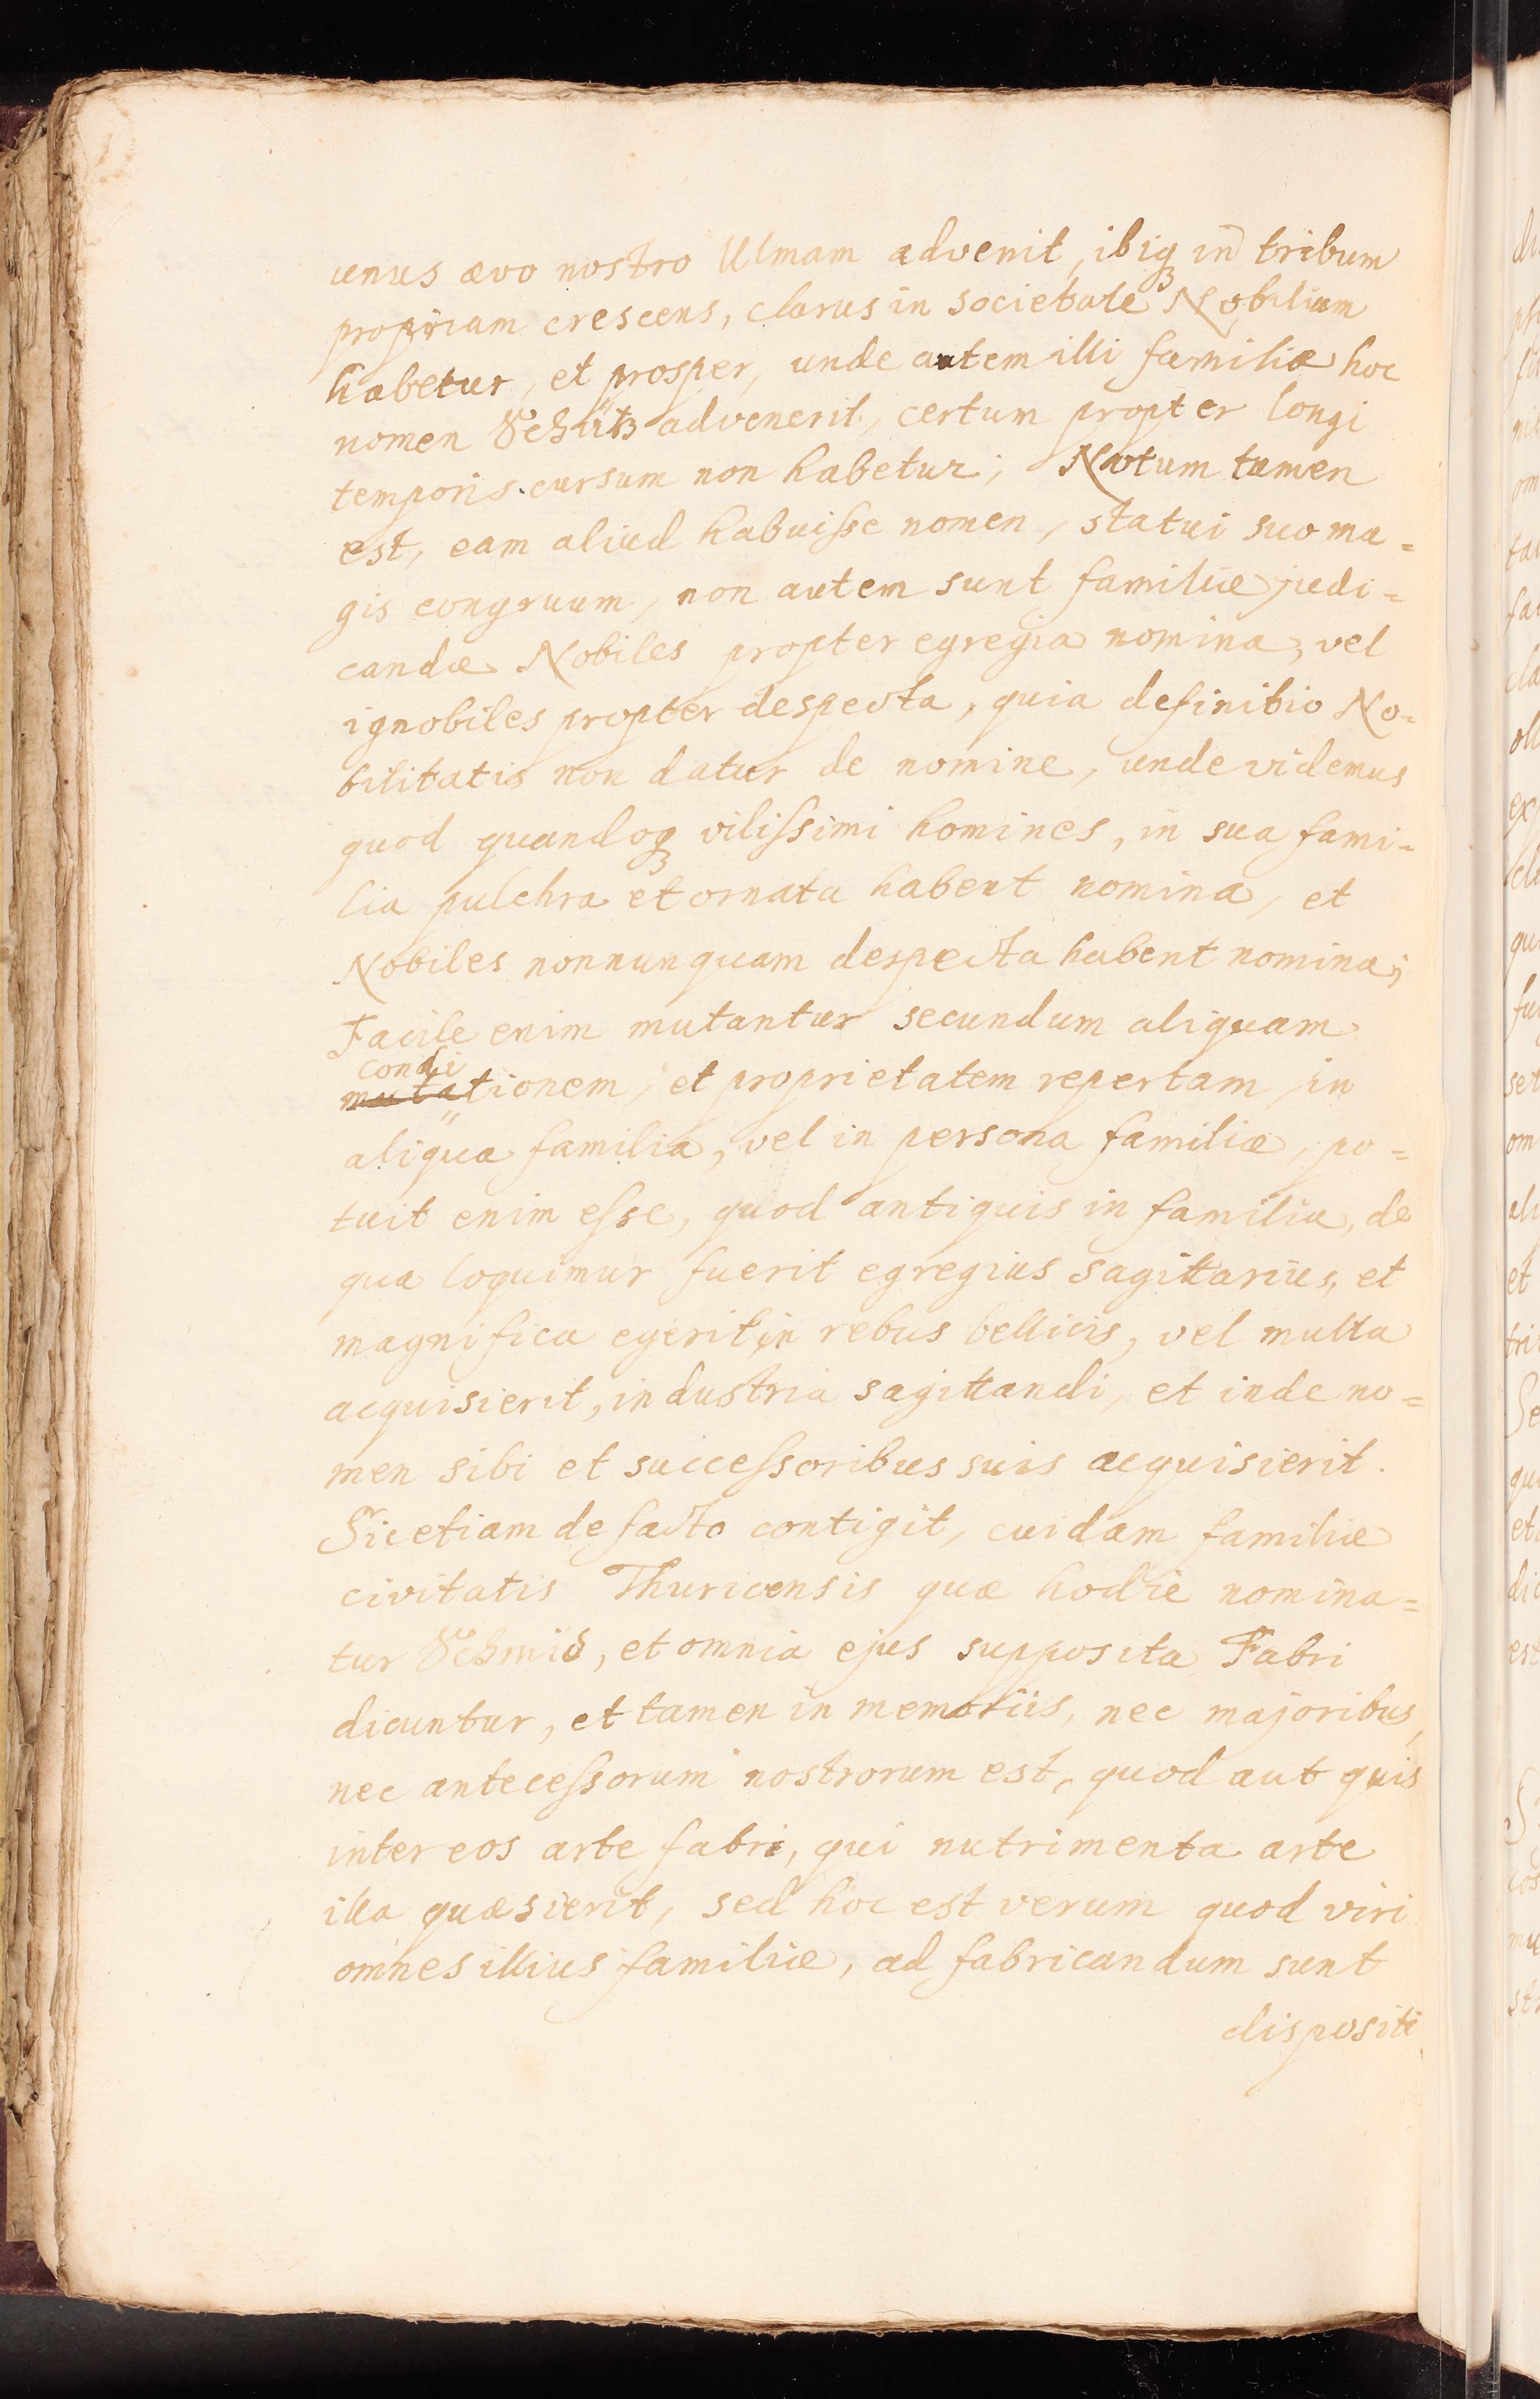 unus ævo nostro Ulmam advenit, ibiq₃ in tribum
propriam crescens, clarus in societate Nobilium
habetur, et prosper, unde autem illi familiæ hoc
nomen Schütz advenerit, certum propter longi
temporis cursum non habetur; Notum tamen
est, eam aliud habuiſse nomen, statui suo ma=
gis congruum, non autem sunt familiæ judi=
candæ Nobiles propter egregia nomina, vel
ignobiles propter despecta, quia definitio No=
bilitatis non datur de nomine, unde videmus
quod quandoq₃ viliſsimi homines, in sua fami=
lia pulchra et ornata habent nomina, et
Nobiles nonnunquam despecta habent nomina;
Facile enim mutantur secundum aliquam
condi
mutationem, et proprietatem repertam in
aliqua familia, vel in persona familiæ, po=
tuit enim eſse, quod antiquis in familia, de
qua loquimur fuerit egregius sagittarius, et
magnifica egerit in rebus bellicis, vel multa
acquisierit, industria sagittandi, et inde no=
men sibi et succeſsoribus suis acquisierit.
Sic etiam de facto contigit, cuidam familiæ
civitatis Thuricensis quæ hodie nomina=
tur Schmid, et omnia ejus supposita Fabri
dicuntur, et tamen in memoriis, nec majoribus,
nec anteceſsorum nostrorum est, quod aut quis
inter eos arte fabri, qui nutrimenta arte
illa quæsierit, sed hoc est verum quod viri
omnes illius familiæ, ad fabricandum sunt
dispositi